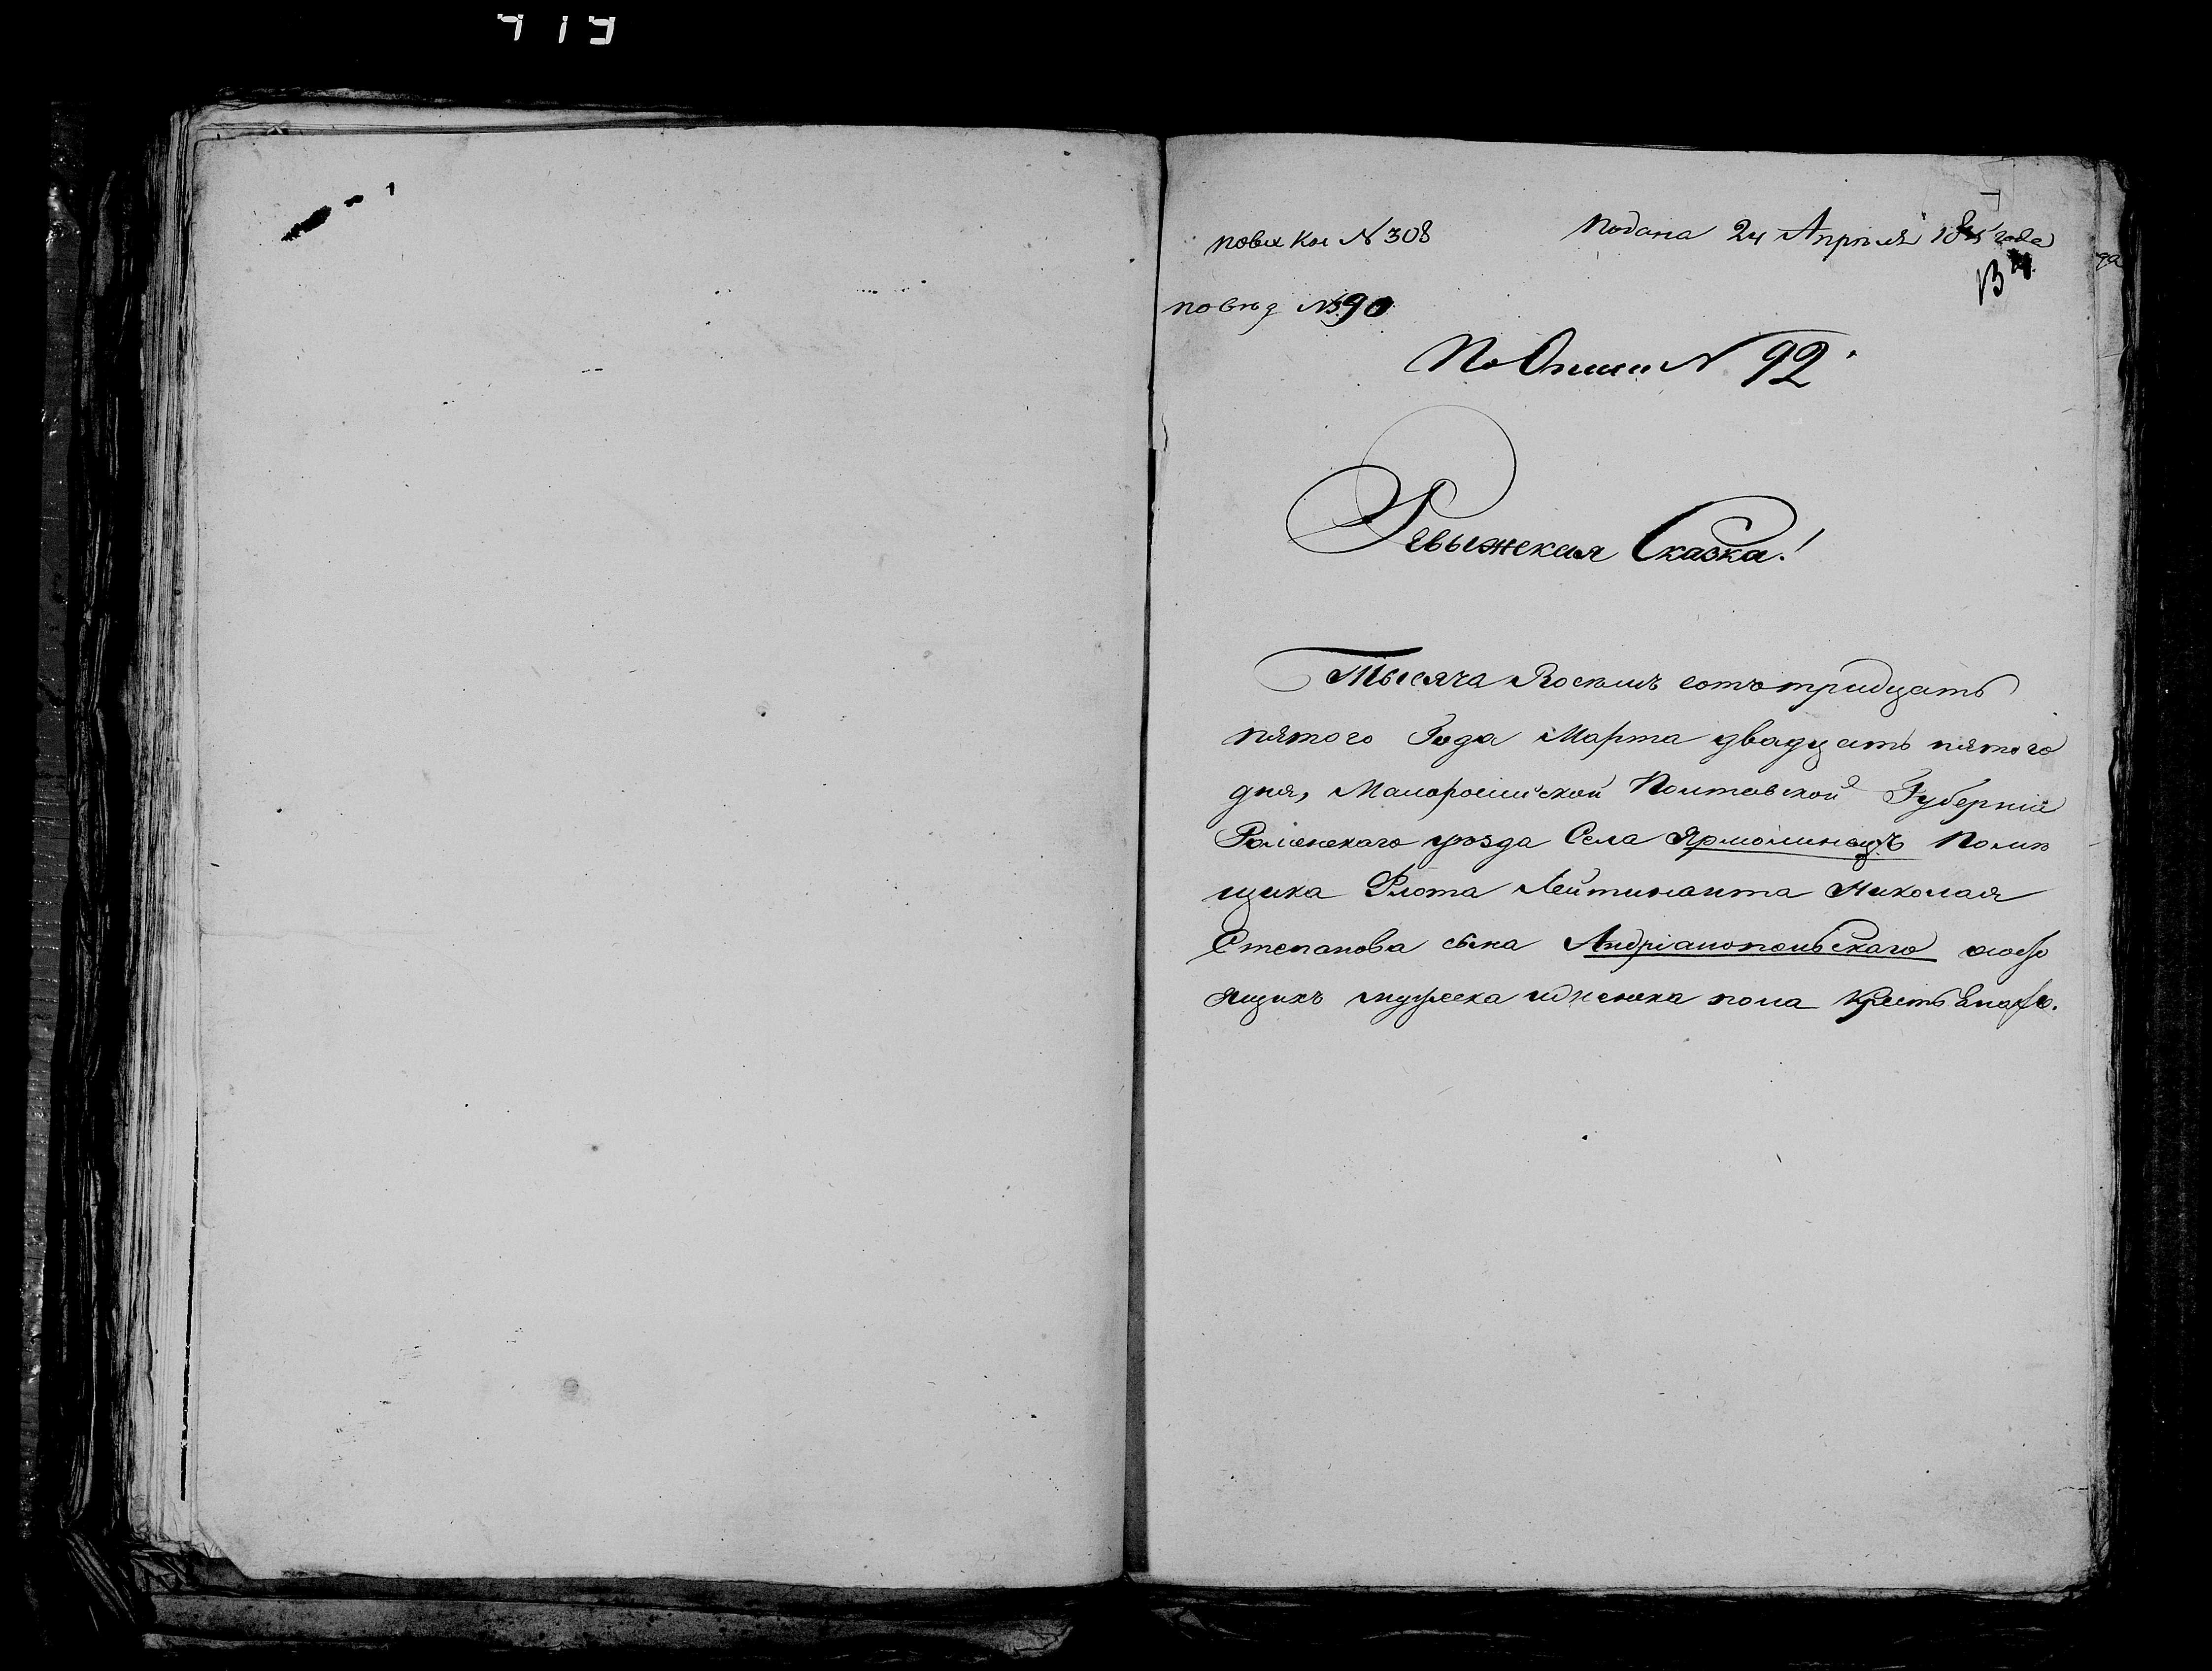 подана 24 Апреля 1835 года
повх Кн N 308
по вѣд N 90
По Описи N 92
Ревыжская Сказка!
Тысяча Восемь сотъ тридцать
пятого Года Марта двадцать пятого
дня, Малоросийской Полтавской Губерніи
Роменскаго уѣзда Села Ярмолинецъ Помѣ
щика Флота Лейтинанта Николая
Степанова сына Андріанопольскаго
ящихъ мужеска и женска пола